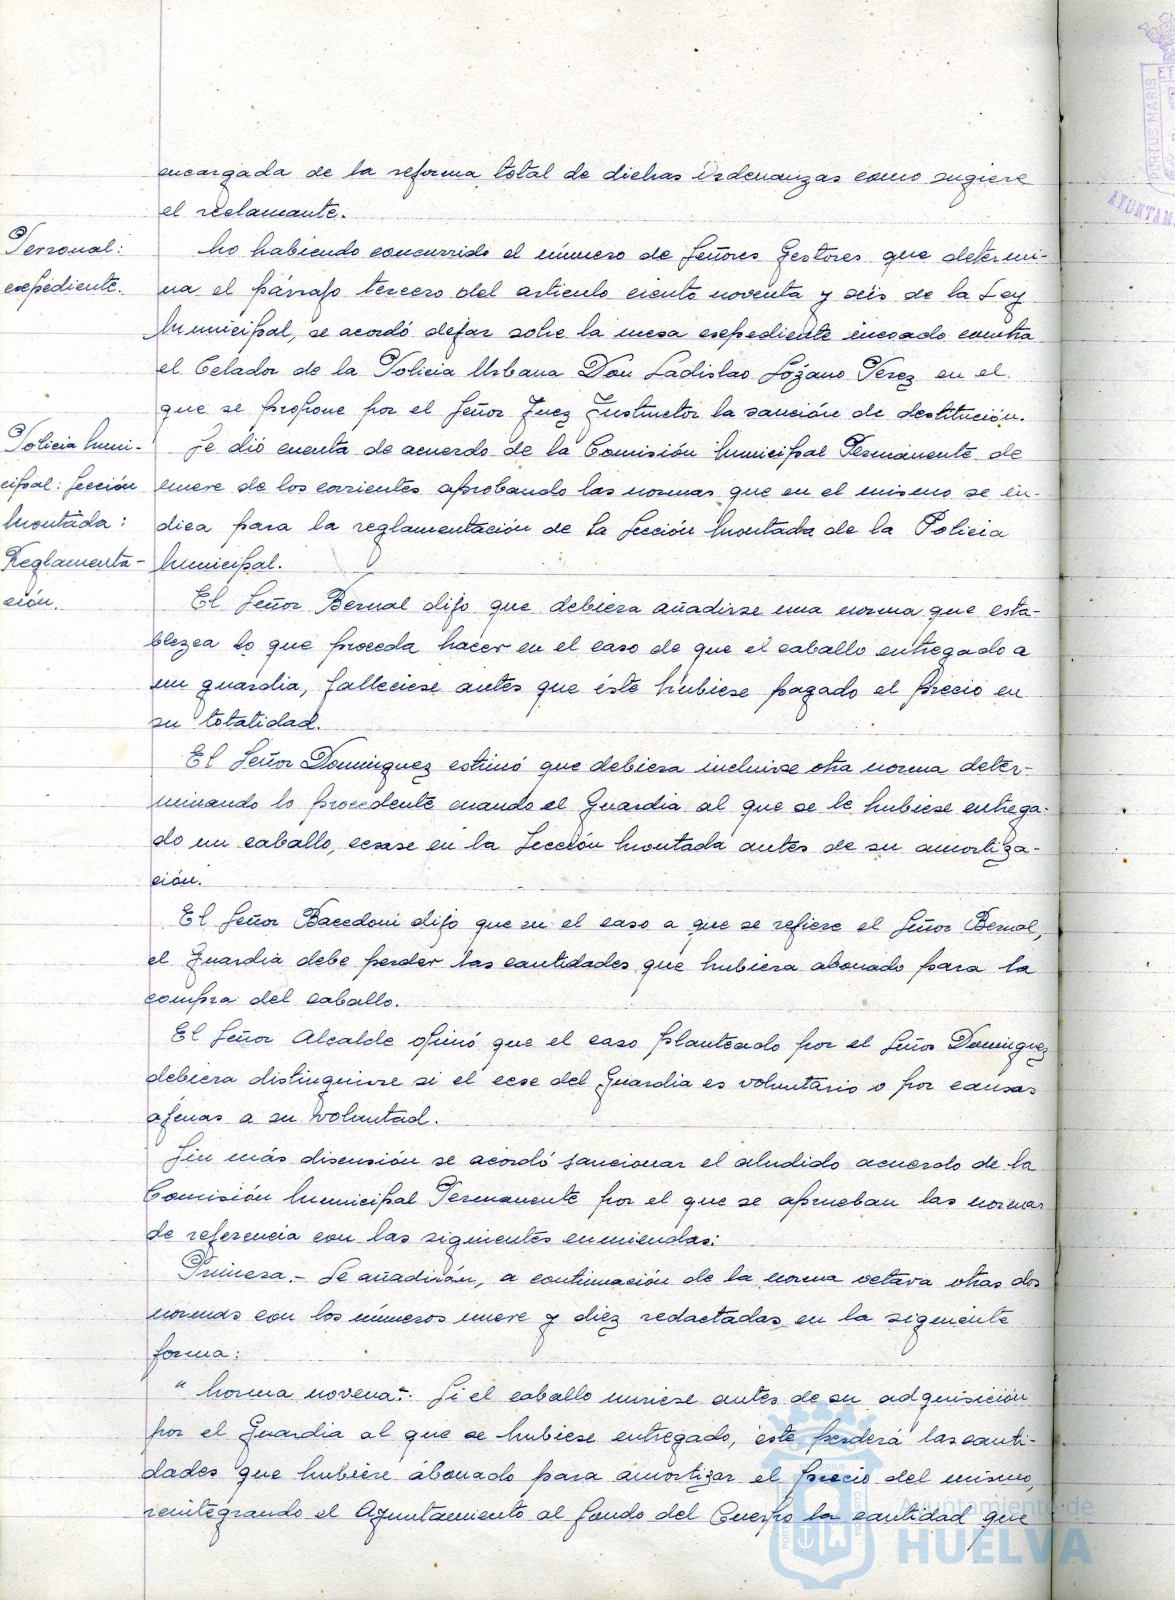 encargada de la reforma total de dichas Ordenanzas como sugiere
el reclamante.
Personal:
expediente.
No habiendo concurrido el número de Señores Gestores que determi-
na el párrafo tercero del articulo ciento noventa y seis de la Ley
Municipal, se acordó dejar sobre la mesa expediente incoado contra
el Celador de la Policia Urbana Don Ladislao Lozano Perez en el
que se propone por el Señor Juez Instructor la sanción de destitución.
Policia Muni-
cipal: Sección
Montada:
Reglamenta-
ción.
Se dió cuenta de acuerdo de la Comisión Municipal Permanente de
nueve de los corrientes aprobando las normas que en el mismo se in-
dica para la reglamentación de la Sección Montada de la Policia
Municipal.
El Señor Bernal dijo que debiera añadirse una norma que esta-
blezca lo que proceda hacer en el caso de que el caballo entregado a
un guardia, falleciese antes que éste hubiese pagado el precio en
su totalidad.
El Señor Dominguez estimó que debiera incluirse otra norma deter-
minando lo procedente cuando el Guardia al que se le hubiese entrega-
do un caballo, cesase en la Sección Montada antes de su amortiza-
ción.
El Señor Bacedoni dijo que en el caso a que se refiere el Señor Bernal,
el Guardia debe perder las cantidades que hubiera abonado para la
compra del caballo.
El Señor Alcalde opinó que el caso planteado por el Señor Dominguez
debiera distinguirse si el cese del Guardia es voluntario o por causas
ajenas a su voluntad.
Sin más discusión se acordó sancionar el aludido acuerdo de la
Comisión Municipal Permanente por el que se aprueban las normas
de referencia con las siguientes enmiendas:
Primera.- Se añadirán, a continuación de la norma octava otras dos
normas con los números nueve y diez redactadas en la siguiente
forma:
"Norma novena".- Si el caballo muriese antes de su adquisición
por el Guardia al que se hubiese entregado, éste perderá las canti-
dades que hubiere abonado para amortizar el precio del mismo,
reintegrando el Ayuntamiento al fondo del Cuerpo la cantidad que
PORTUS MARIS
AYUNTAM
Ayuntamiento de
HUELVA